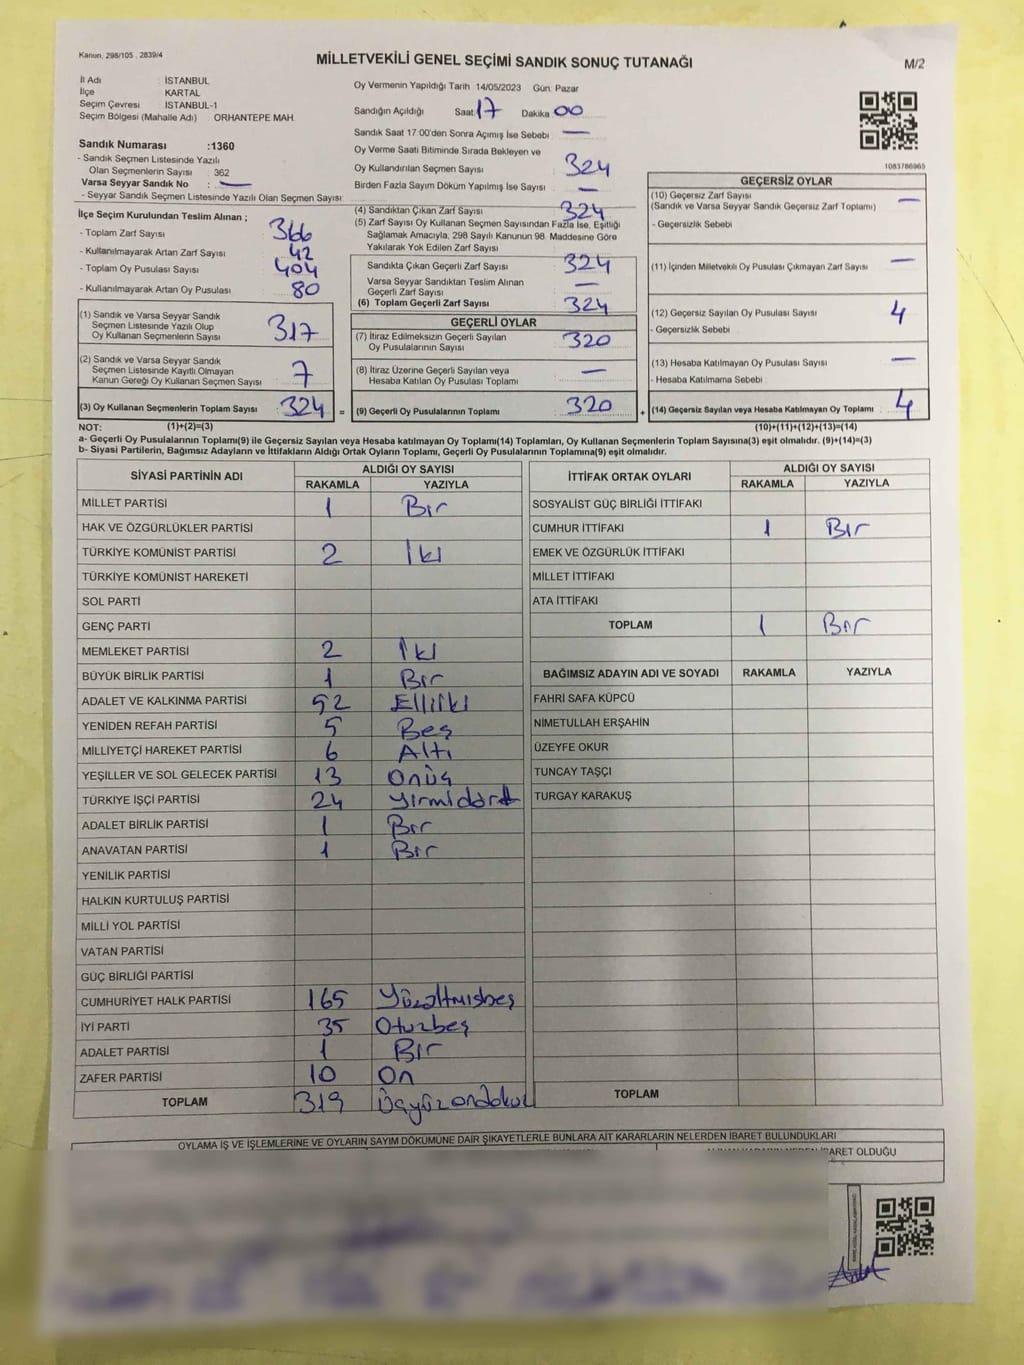 Kanun, 298/105 , 2839/4
MİLLETVEKİLİ GENEL SEÇİMİ SANDIK SONUÇ TUTANAĞI
M/2
İl Adı : İSTANBUL
İlçe : KARTAL
Seçim Çevresi : İSTANBUL-1
Seçim Bölgesi (Mahalle Adı) ORHANTEPE MAH.
Sandık Numarası :1360
- Sandık Seçmen Listesinde Yazılı
Olan Seçmenlerin Sayısı : 362
Varsa Seyyar Sandık No : —
- Seyyar Sandık Seçmen Listesinde Yazılı Olan Seçmen Sayısı:
Oy Vermenin Yapıldığı Tarih 14/05/2023 Gün: Pazar
Sandığın Açıldığı Saat: 17 Dakika 00
Sandık Saat 17:00'den Sonra Açımış İse Sebebi : —
Oy Verme Saati Bitiminde Sırada Bekleyen ve
Oy Kullandırılan Seçmen Sayısı : 324
Birden Fazla Sayım Döküm Yapılmış İse Sayısı : —
1083786965
İlçe Seçim Kurulundan Teslim Alınan ;
- Toplam Zarf Sayısı : 366
- Kullanılmayarak Artan Zarf Sayısı : 42
- Toplam Oy Pusulası Sayısı : 404
- Kullanılmayarak Artan Oy Pusulası : 80
(1) Sandık ve Varsa Seyyar Sandık
Seçmen Listesinde Yazılı Olup
Oy Kullanan Seçmenlerin Sayısı : 317
(2) Sandık ve Varsa Seyyar Sandık
Seçmen Listesinde Kayıtlı Olmayan
Kanun Gereği Oy Kullanan Seçmen Sayısı : 7
(3) Oy Kullanan Seçmenlerin Toplam Sayısı : 324 =
(4) Sandıktan Çıkan Zarf Sayısı : 324
(5) Zarf Sayısı Oy Kullanan Seçmen Sayısından Fazla İse, Eşitliği
Sağlamak Amacıyla, 298 Sayılı Kanunun 98. Maddesine Göre
Yakılarak Yok Edilen Zarf Sayısı :
Sandıkta Çıkan Geçerli Zarf Sayısı : 324
Varsa Seyyar Sandıktan Teslim Alınan
Geçerli Zarf Sayısı : —
(6) Toplam Geçerli Zarf Sayısı : 324
GEÇERLİ OYLAR
(7) İtiraz Edilmeksizin Geçerli Sayılan
Oy Pusulalarının Sayısı : 320
(8) İtiraz Üzerine Geçerli Sayılan veya
Hesaba Katılan Oy Pusulası Toplamı : —
(9) Geçerli Oy Pusulalarının Toplamı : 320 +
GEÇERSİZ OYLAR
(10) Geçersiz Zarf Sayısı : —
(Sandık ve Varsa Seyyar Sandık Geçersiz Zarf Toplamı)
- Geçersizlik Sebebi :
(11) İçinden Milletvekili Oy Pusulası Çıkmayan Zarf Sayısı : —
(12) Geçersiz Sayılan Oy Pusulası Sayısı : 4
- Geçersizlik Sebebi :
(13) Hesaba Katılmayan Oy Pusulası Sayısı : —
- Hesaba Katılmama Sebebi :
(14) Geçersiz Sayılan veya Hesaba Katılmayan Oy Toplamı : 4
NOT: (1)+(2)=(3) (10)+(11)+(12)+(13)=(14)
a- Geçerli Oy Pusulalarının Toplamı(9) ile Geçersiz Sayılan veya Hesaba katılmayan Oy Toplamı(14) Toplamları, Oy Kullanan Seçmenlerin Toplam Sayısına(3) eşit olmalıdır. (9)+(14)=(3)
b- Siyasi Partilerin, Bağımsız Adayların ve İttifakların Aldığı Ortak Oyların Toplamı, Geçerli Oy Pusulalarının Toplamına(9) eşit olmalıdır.
SİYASİ PARTİNİN ADI ALDIĞI OY SAYISI
RAKAMLA YAZIYLA
MİLLET PARTİSİ 1 Bir
HAK VE ÖZGÜRLÜKLER PARTİSİ
TÜRKİYE KOMÜNİST PARTİSİ 2 İki
TÜRKİYE KOMÜNİST HAREKETİ
SOL PARTİ
GENÇ PARTİ
MEMLEKET PARTİSİ 2 İki
BÜYÜK BİRLİK PARTİSİ 1 Bir
ADALET VE KALKINMA PARTİSİ 52 Elliiki
YENİDEN REFAH PARTİSİ 5 Beş
MİLLİYETÇİ HAREKET PARTİSİ 6 Altı
YEŞİLLER VE SOL GELECEK PARTİSİ 13 Onüç
TÜRKİYE İŞÇİ PARTİSİ 24 Yirmidört
ADALET BİRLİK PARTİSİ 1 Bir
ANAVATAN PARTİSİ 1 Bir
YENİLİK PARTİSİ
HALKIN KURTULUŞ PARTİSİ
MİLLİ YOL PARTİSİ
VATAN PARTİSİ
GÜÇ BİRLİĞİ PARTİSİ
CUMHURİYET HALK PARTİSİ 165 Yüzaltmışbeş
İYİ PARTİ 35 Otuzbeş
ADALET PARTİSİ 1 Bir
ZAFER PARTİSİ 10 On
TOPLAM 319 Üçyüzondokuz
İTTİFAK ORTAK OYLARI ALDIĞI OY SAYISI
RAKAMLA YAZIYLA
SOSYALİST GÜÇ BİRLİĞİ İTTİFAKI
CUMHUR İTTİFAKI 1 Bir
EMEK VE ÖZGÜRLÜK İTTİFAKI
MİLLET İTTİFAKI
ATA İTTİFAKI
TOPLAM 1 Bir
BAĞIMSIZ ADAYIN ADI VE SOYADI RAKAMLA YAZIYLA
FAHRİ SAFA KÜPCÜ
NİMETULLAH ERŞAHİN
ÜZEYFE OKUR
TUNCAY TAŞÇI
TURGAY KARAKUŞ
TOPLAM
OYLAMA İŞ VE İŞLEMLERİNE VE OYLARIN SAYIM DÖKÜMÜNE DAİR ŞİKAYETLERLE BUNLARA AİT KARARLARIN NELERDEN İBARET BULUNDUKLARI
OLDUĞU